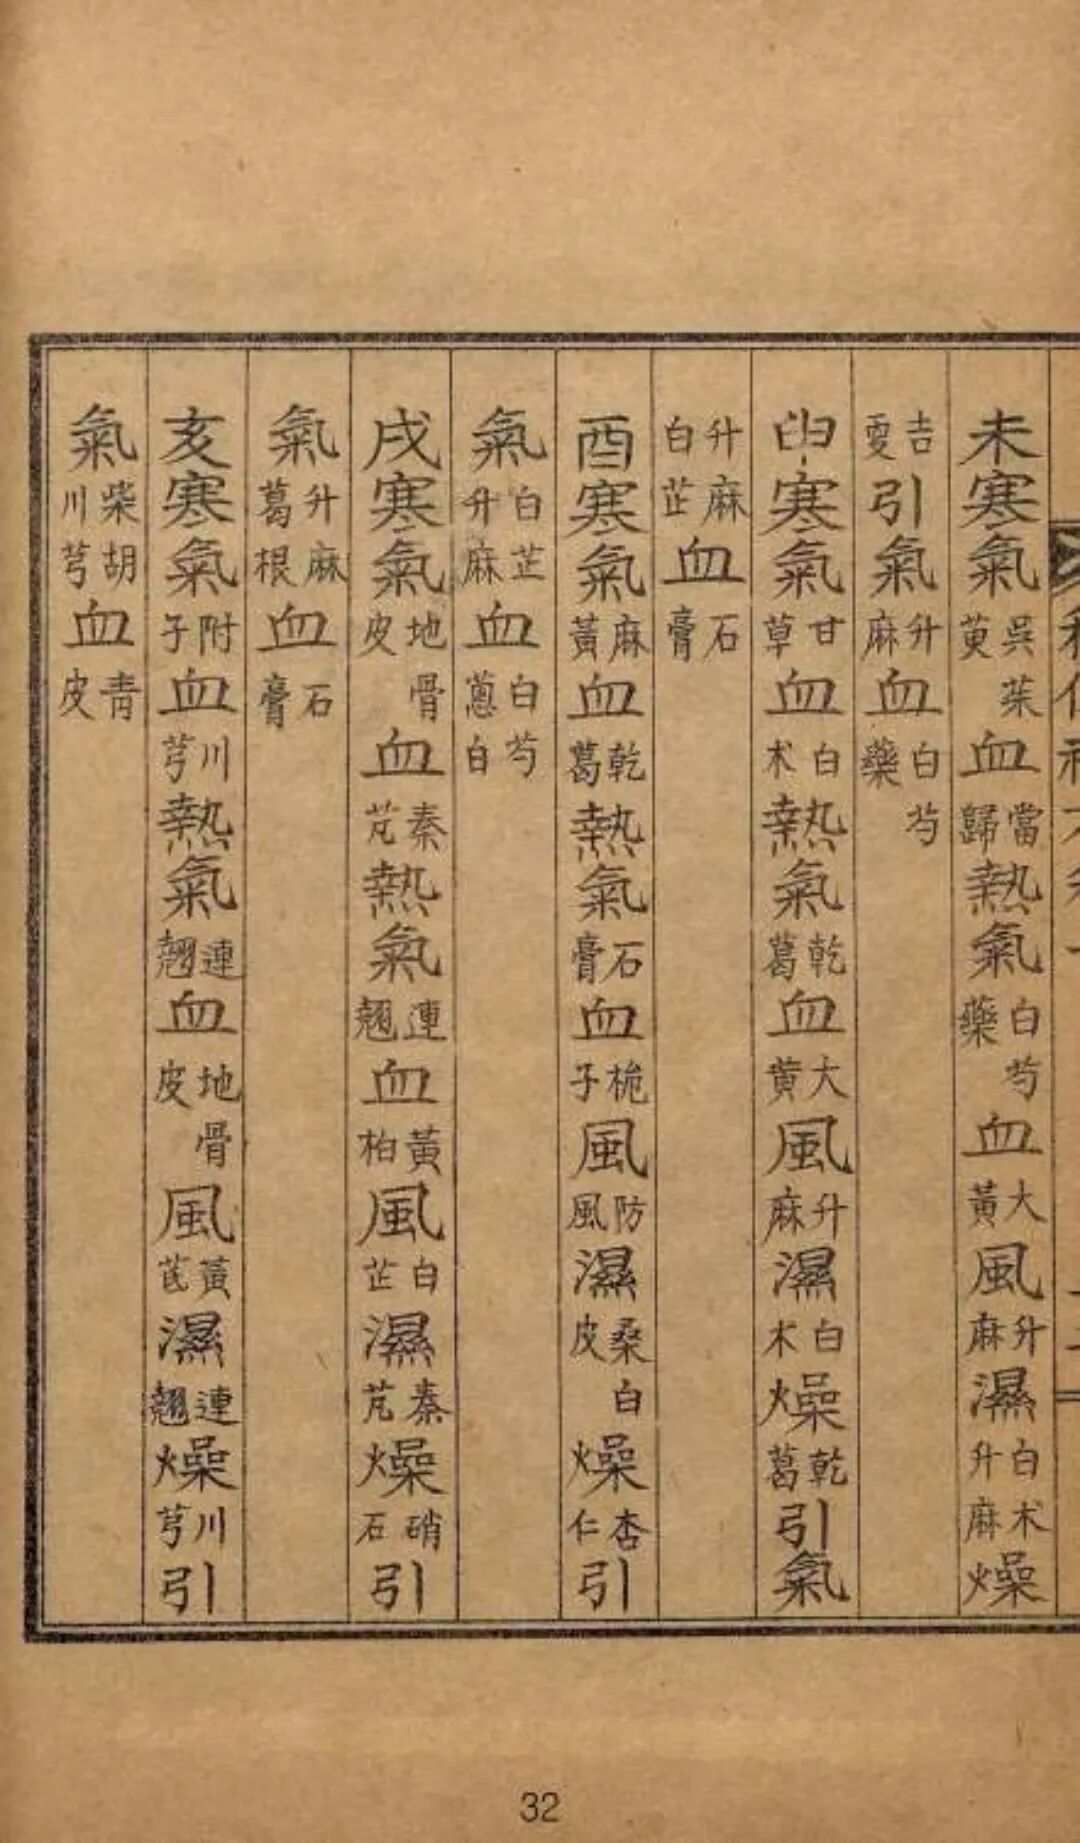 未寒氣吳茱萸血當歸熱氣白芍藥血大黃風升麻濕白朮升麻燥
吉更引氣升麻血白芍藥
申寒氣甘草血白朮熱氣乾葛血大黃風升麻濕白朮燥乾葛引氣
升麻白芷血石膏
酉寒氣麻黃血乾葛熱氣石膏血梔子風防風濕桑白皮燥杏仁引
氣白芷升麻血白芍蔥白
戌寒氣地骨皮血秦艽熱氣連翹血黃柏風白芷濕秦艽燥硝石引
氣升麻葛根血石膏
亥寒氣附子血川芎熱氣連翹血地骨皮風黃芪濕連翹燥川芎引
氣柴胡川芎血青皮
32